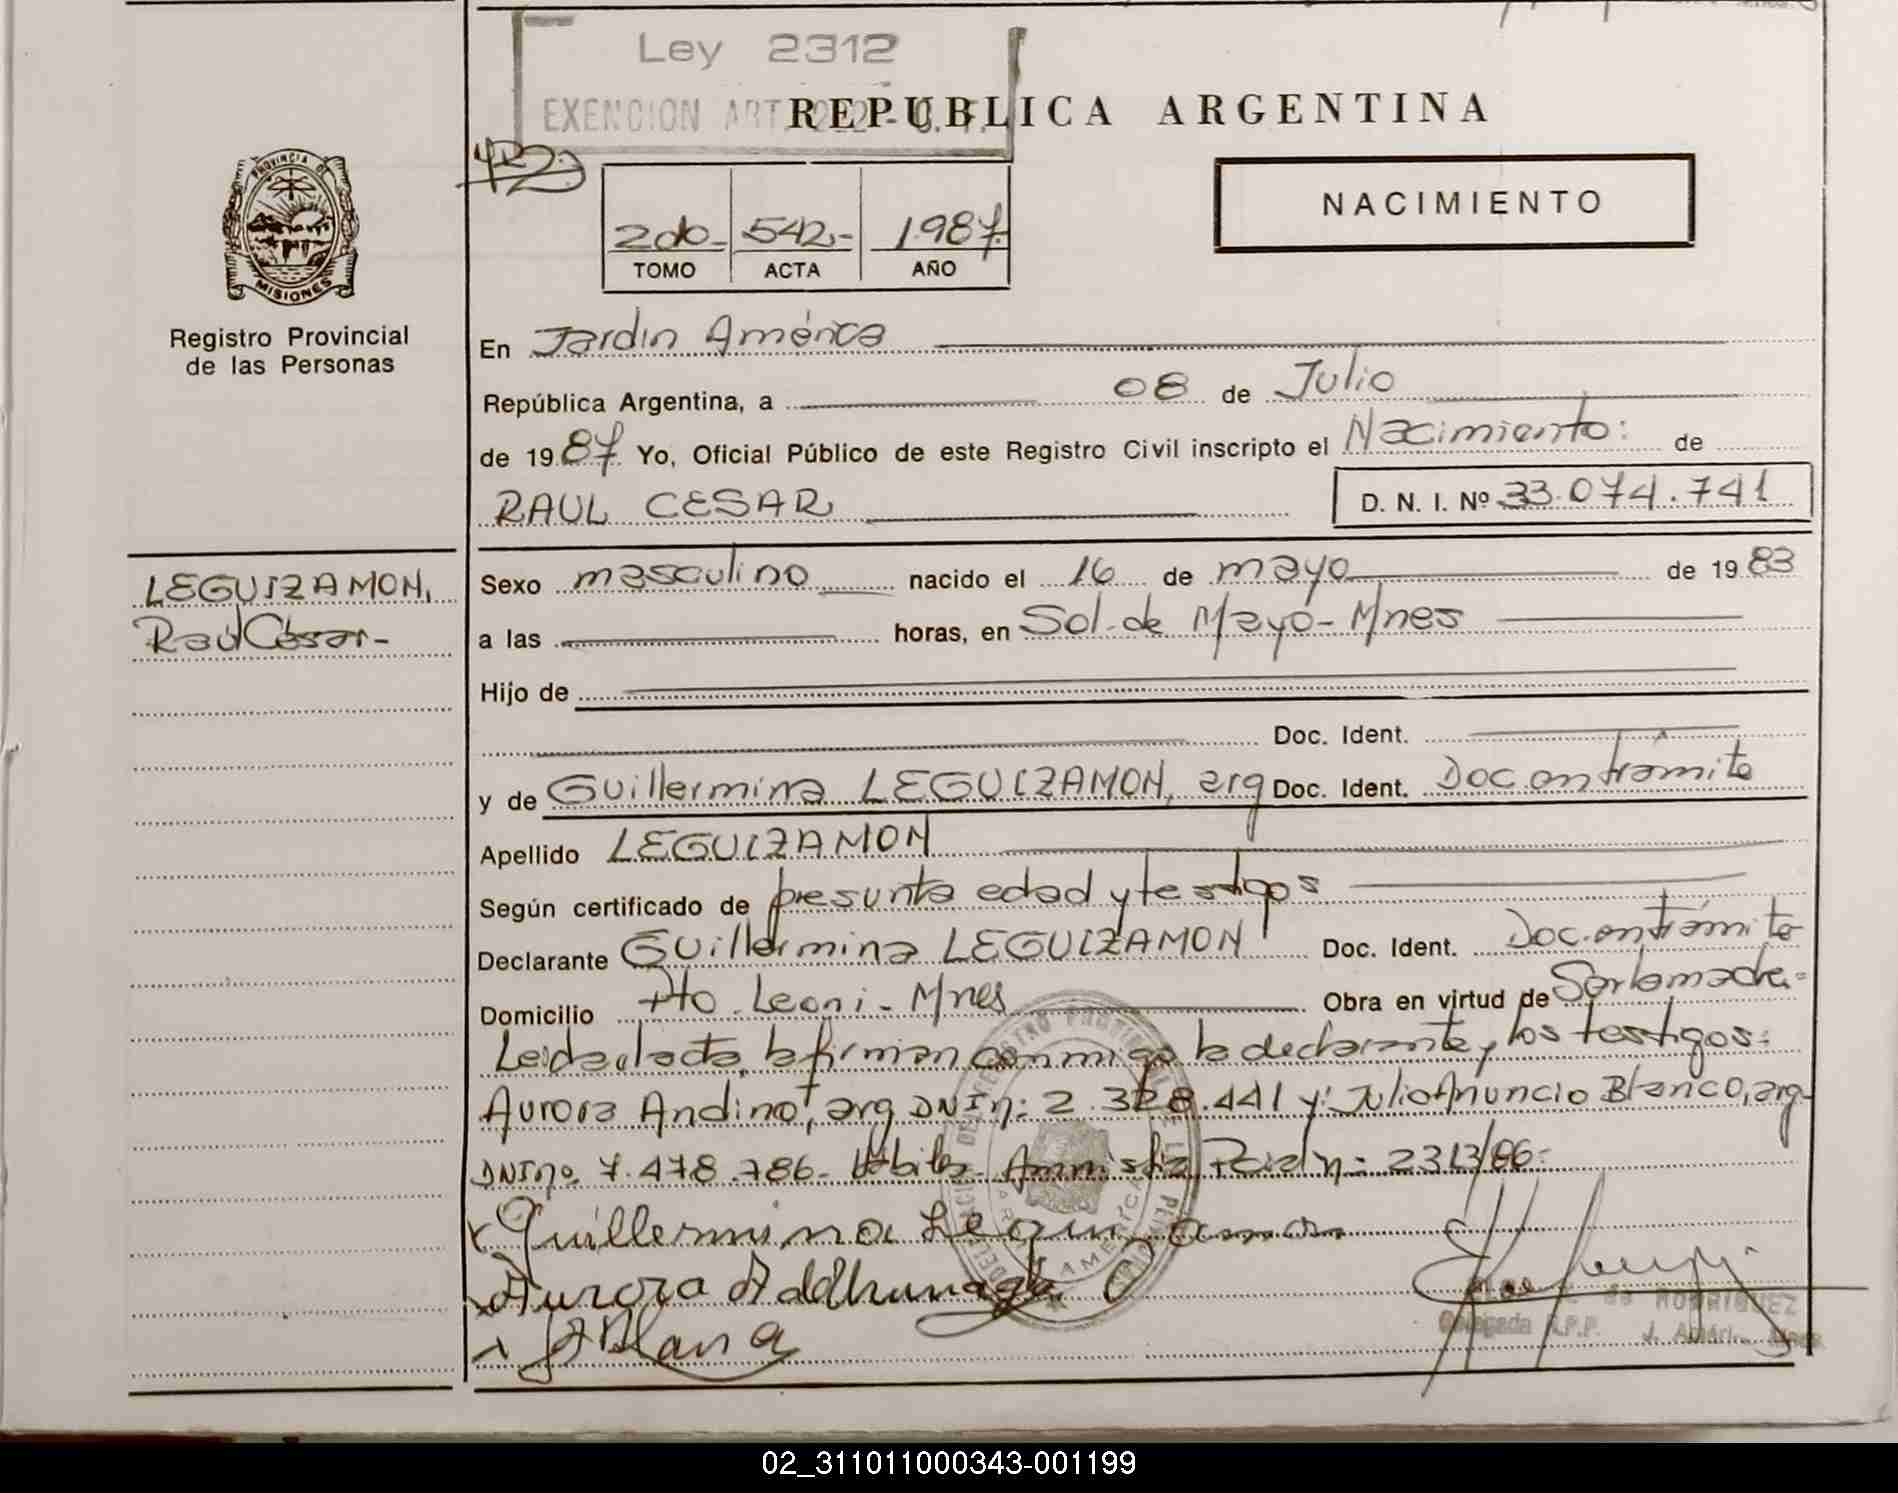 Ley 2312
EXENCION ART
REPUBLICA ARGENTINA
NACIMIENTO
2do.- 542.- 1.987.-
TOMO ACTA AÑO
PROVINCIA DE
MISIONES
Registro Provincial
de las Personas
En Jardin América
República Argentina, a 08 de Julio
de 1987 Yo, Oficial Público de este Registro Civil inscripto el Nacimiento: de
RAUL CESAR D. N. I. Nº 33.074.741
LEGUIZAMON,
Raúl César.-
Sexo masculino nacido el 16 de mayo de 1983
a las horas, en Sol de Mayo - Mnes
Hijo de
Doc. Ident.
y de Guillermina LEGUIZAMON, arg Doc. Ident. Doc en trámite
Apellido LEGUIZAMON
Según certificado de presunta edad y testigos
Declarante Guillermina LEGUIZAMON Doc. Ident. Doc. en trámite
Domicilio Pto. Leoni - Mnes Obra en virtud de Ser la madre.-
Leida el acta, la firman conmigo la declarante y los testigos:
Aurora Andino, arg DNI nº: 2.328.441 y: Julio Anuncio Blanco, arg
DNI nº 7.478.786.- Amnistia nº: 2312/86.-
x Guillermina Leguizamon
x Aurora
x J A Blanco
de RODRIGUEZ
Delegada R.P.P. J. Améri. Mnes.
02_311011000343-001199